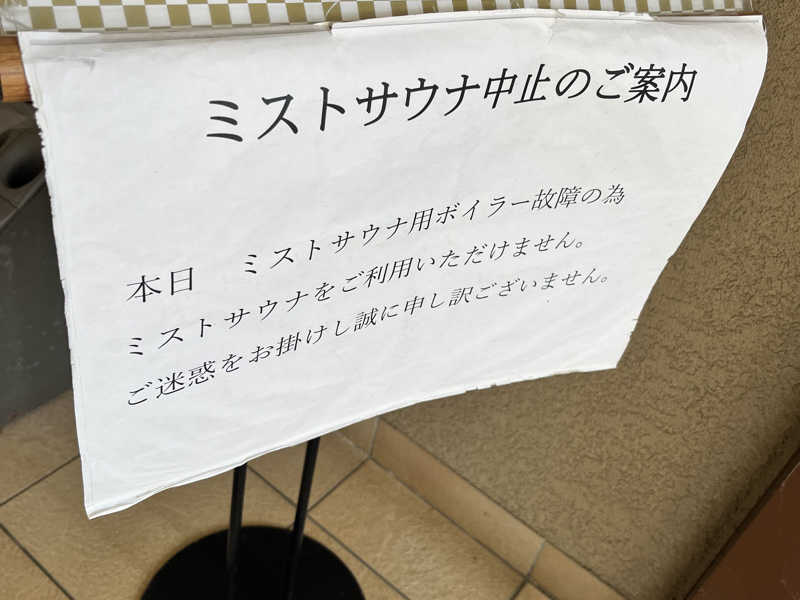 ミストサウナ中止のご案内
本日　ミストサウナ用ボイラー故障の為
ミストサウナをご利用いただけません。
ご迷惑をお掛けし誠に申し訳ございません。